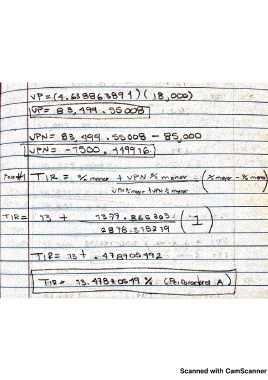 VP = (4.638863891) (18,000)
VP = 83,499.55008
VPN = 83,499.55008 - 85,000
VPN = -1500.449916
TIR = % menor + VPN % menor (% mayor - % menor)
VPN % menor + VPN % mayor
TIR = 13 + 1377.866363 (1)
2878.315279
TIR = 13 + .478705492
TIR = 13.47870549 % (Perforadora A)
Scanned with CamScanner